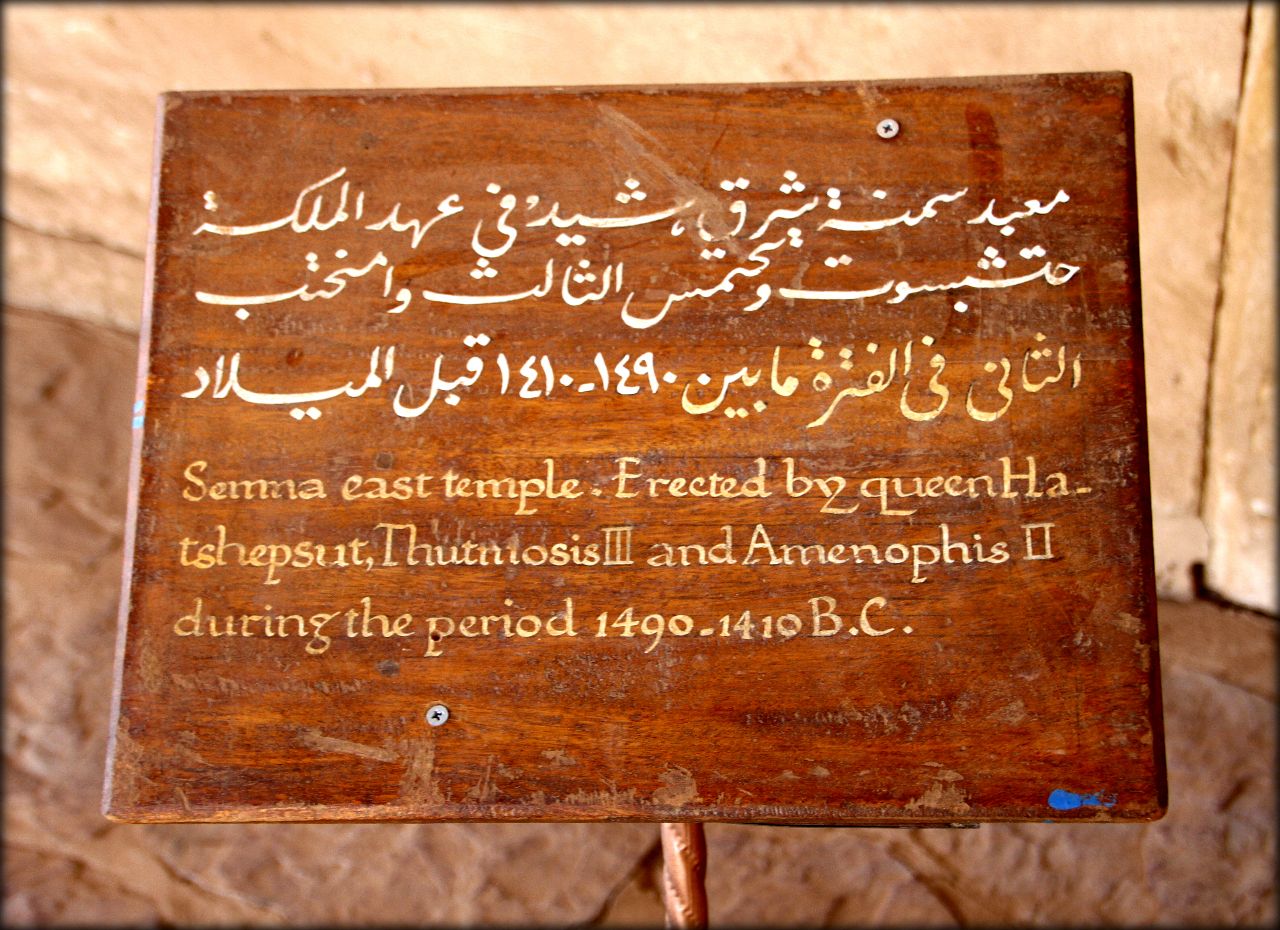 معبد سمنة شرق، شيد في عهد الملكة
حتشبسوت وتحتمس الثالث وامنحتب
الثانى فى الفترة مابين ١٤٩٠-١٤١٠ قبل الميلاد
Semna east temple. Erected by queen Ha-
tshepsut, Thutmosis III and Amenophis II
during the period 1490-1410 B.C.